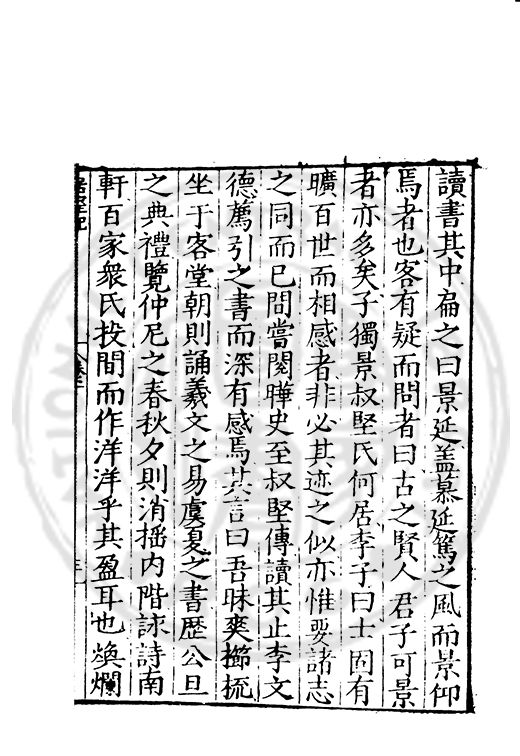 讀書其中扁之曰景延盖慕延篤之風而景仰
焉者也客有疑而問者曰古之賢人君子可景
者亦多矣子獨景叔堅氏何居李子曰士固有
曠百世而相感者非必其迹之似亦惟要諸志
之同而已間嘗閱曄史至叔堅傳讀其止李文
德薦引之書而深有感焉其言曰吾昧爽櫛梳
坐于客堂朝則誦羲文之易虞夏之書歷公旦
之典禮覽仲尼之春秋夕則消揺内階詠詩南
軒百家衆氏投間而作洋洋乎其盈耳也煥爛